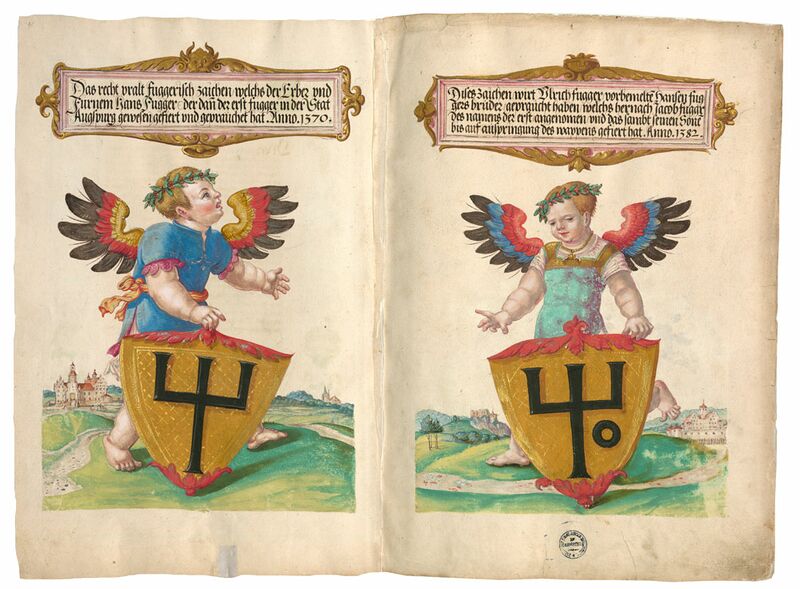 Das recht vralt fuggerisch zaichen welchs der Erber vnd
Furnem Hans fugger der dan der erst fugger in der Stat
Augspurg gewesen gefiert vnd gebrauchet hat. Anno. 1370.
Dises zaichen wirt Vlrich fugger vorbemelts Hansen fug
gers brůder gepraucht haben welchs hernach Jacob fugger
des namens der erst angenomen vnd das sambt seinen Sönen
bis auf auspringung des wappens gefiert hat. Anno. 1382.